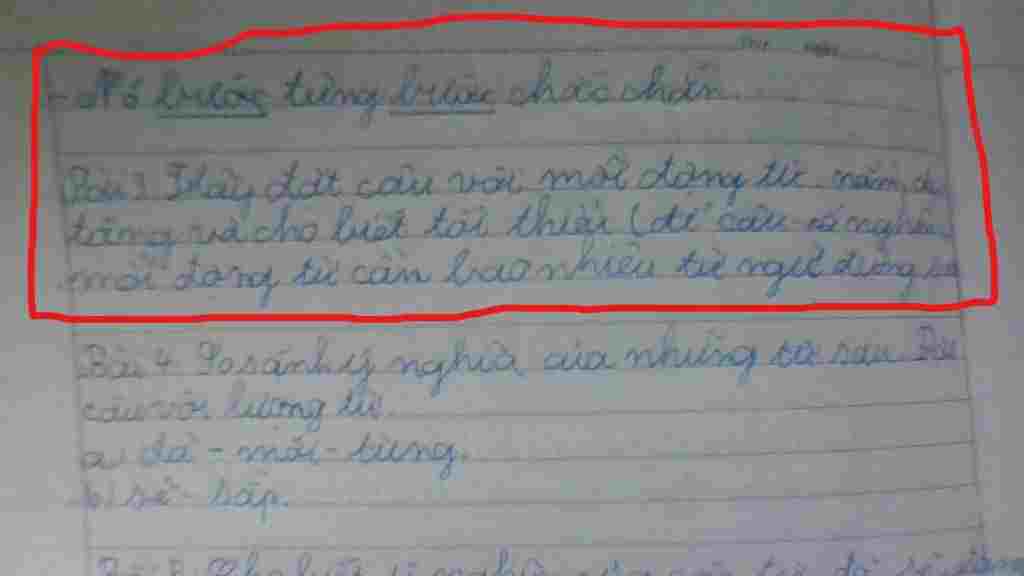 - Nó bước từng bước chắc chắn.
Bài 3. Hãy đặt câu với mỗi động từ: nằm,
tặng và cho biết tối thiểu (để câu rõ nghĩa)
mỗi động từ cần bao nhiêu từ ngữ đứng
Bài 4. So sánh ý nghĩa của những từ sau. Đặt
câu với lượng từ.
a) đã - mới - từng.
b) sẽ - sắp.